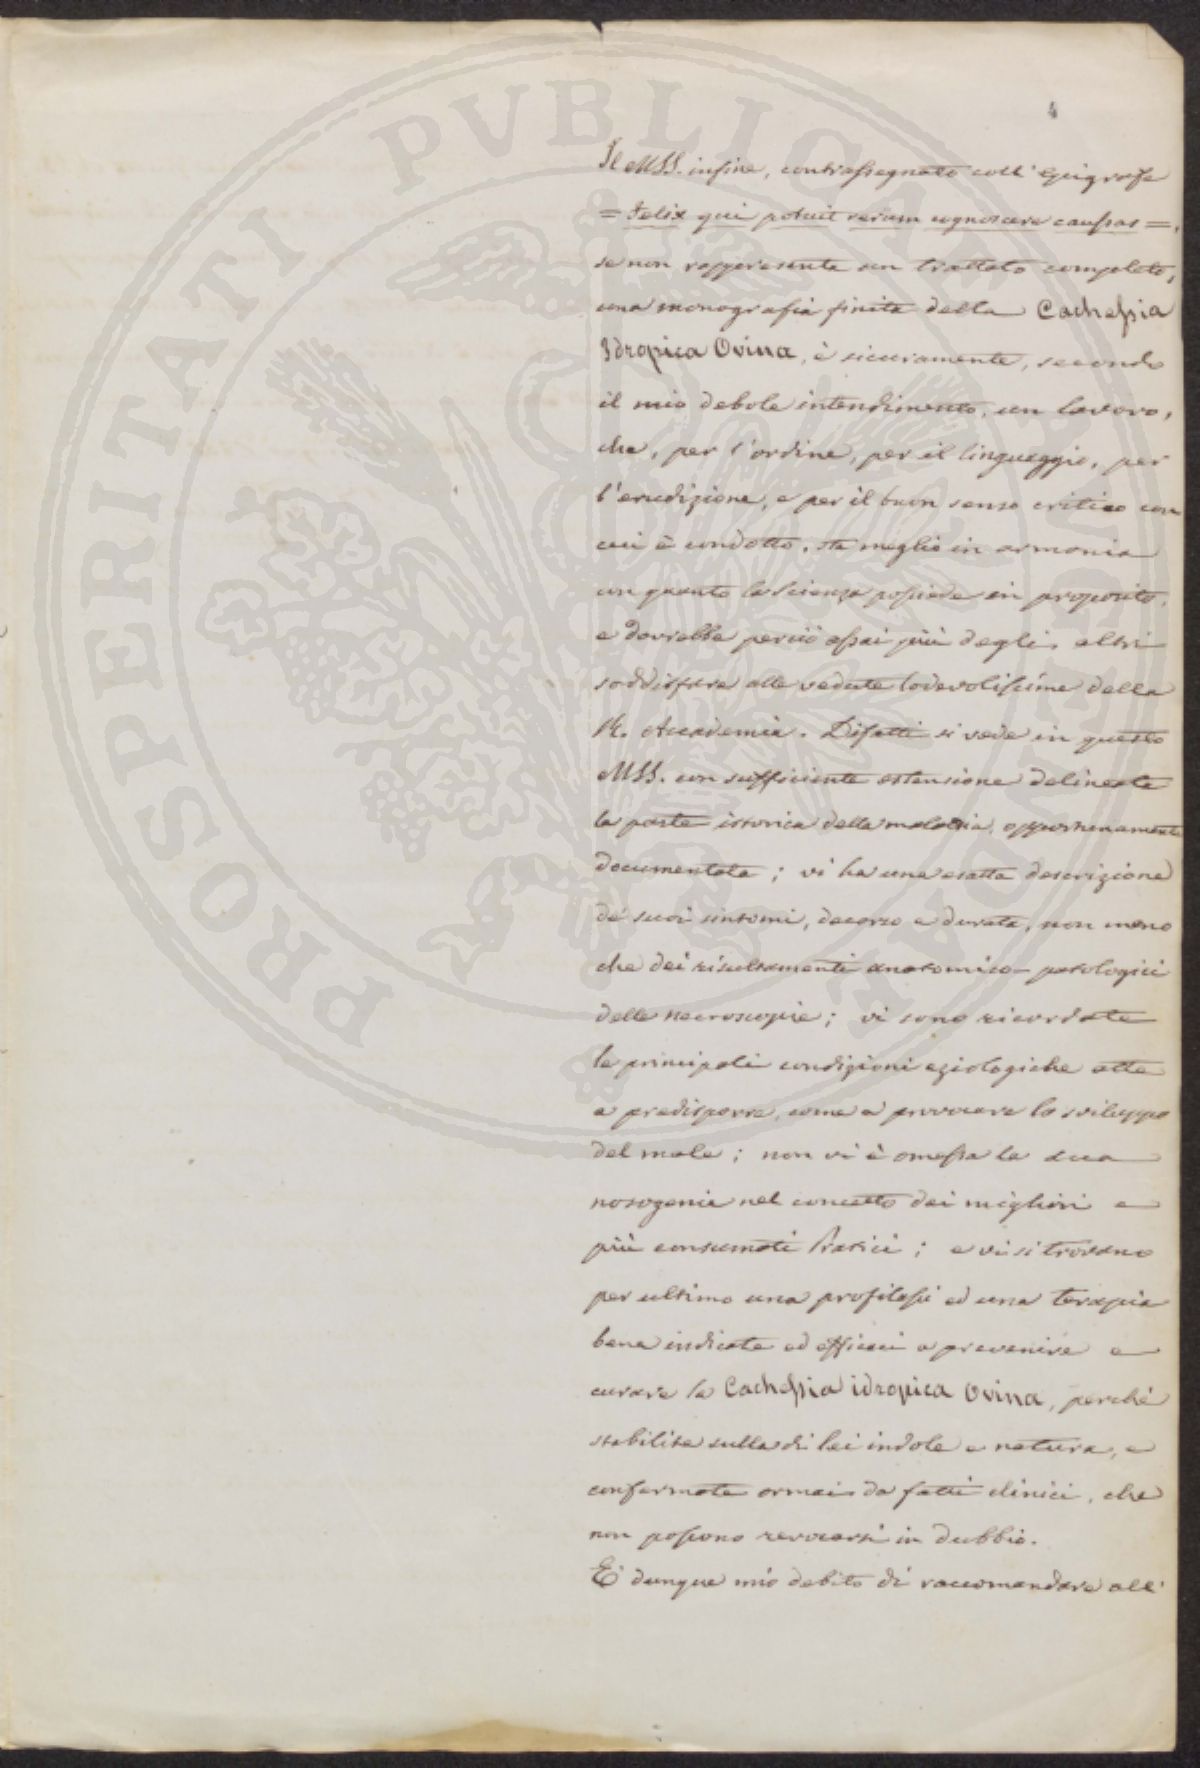 4
PROSPERITATI PVBLICAE AVGENDAE
Il MSS. infine, contrassegnato coll' Epigrafe
= Felix qui potuit rerum cognoscere caussas =,
se non rappresenta un trattato completo,
una monografia finita della Cachessia
Idropica Ovina, è sicuramente, secondo
il mio debole intendimento, un lavoro,
che, per l'ordine, per il linguaggio, per
l'erudizione, e per il buon senso critico con
cui è condotto, sta meglio in armonia
con quanto la Scienza possiede in proposito,
e dovrebbe perciò assai più degli altri
soddisfare alle vedute lodevolissime della
R. Accademia. Difatti si vede in questo
MSS. con sufficiente estensione delineata
la parte istorica della malattia, opportunamente
documentata; vi ha una esatta descrizione
de' suoi sintomi, decorso e durata, non meno
che dei risultamenti anatomico-patologici
delle necroscopie; vi sono ricordate
le principali condizioni eziologiche atte
a predisporre, come a provocare lo sviluppo
del male; non vi è omessa la sua
nosogenia nel concetto dei migliori e
più consumati Pratici; e vi si trovano
per ultimo una profilassi ed una terapia
bene indicate ed efficaci a prevenire e
curare la Cachessia idropica Ovina, perchè
stabilite sulla di lei indole e natura, e
confermate ormai da fatti clinici, che
non possono revocarsi in dubbio.
E' dunque mio debito di raccomandare all'